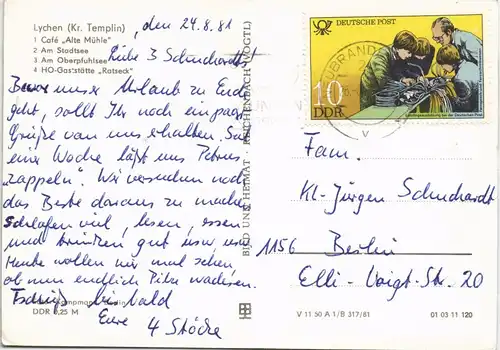 Lychen (Kr. Templin)
1 Café „Alte Mühle"
2 Am Stadtsee
3 Am Oberpfuhlsee
4 HO-Gaststätte „Ratseck"
, den 24.8.81
Liebe 3 Schuchardts!
Bevor unser Urlaub zu Ende
geht, sollt Ihr noch ein paar
Grüße von uns erhalten. Seit
einer Woche läßt uns Petrus
„zappeln". Wir versuchen noch
das Beste daraus zu machen
Schlafen viel, lesen, essen
und trinken gut usw usw
Heute wollen wir mal sehen,
ob nun endlich Pilze wachsen.
Tschüß bis bald
Eure 4 Stöcke
DDR 0,25 M
BILD UND HEIMAT REICHENBACH (VOGTL)
DEUTSCHE POST
10
DDR
UBRAND
Fam.
Kl-Jürgen Schuchardt
1156 Berlin
Elli-Voigt-Str. 20
V 11 50 A 1/B 317/81
01 03 11 120